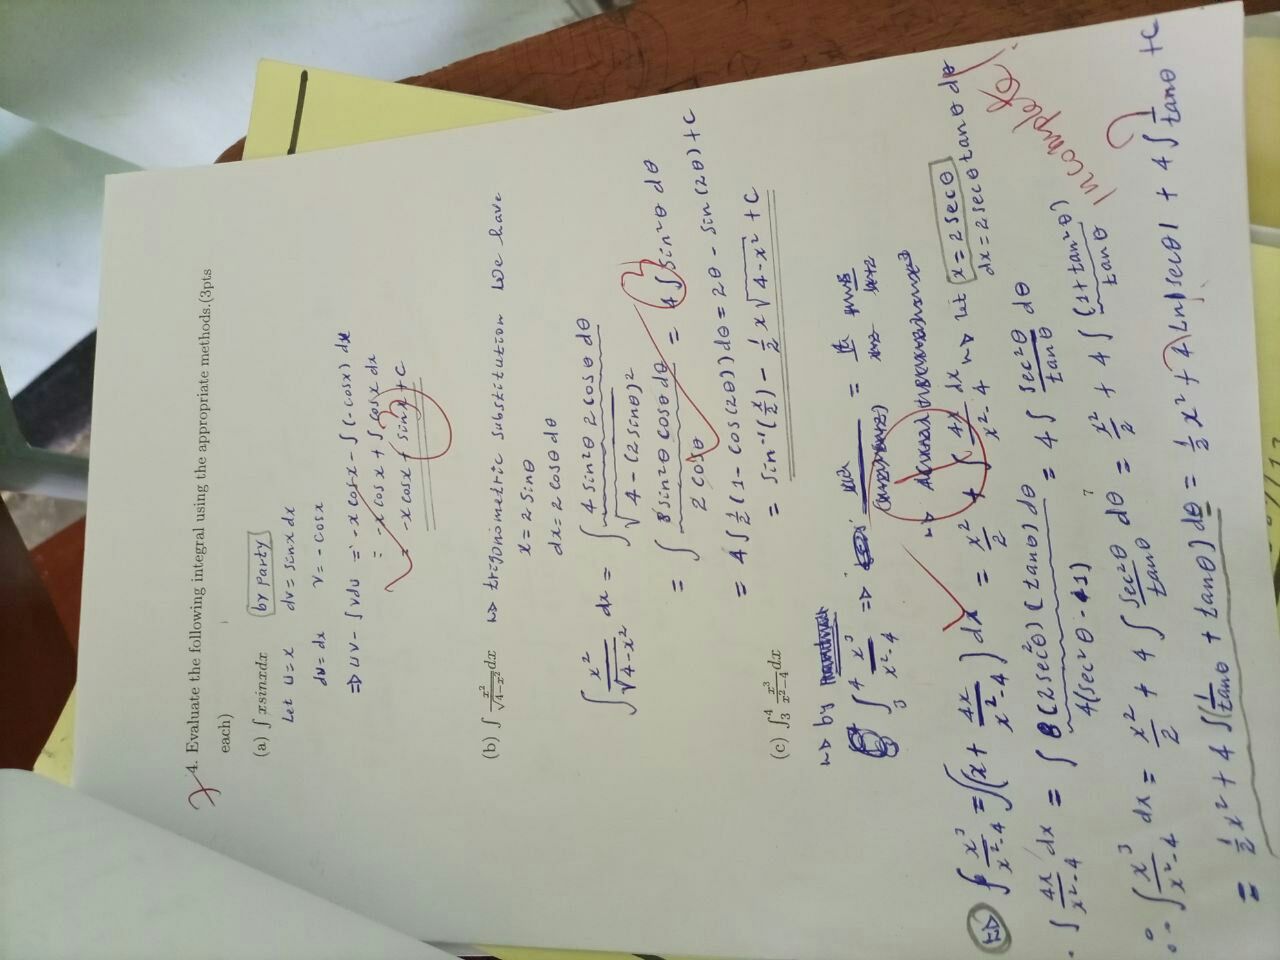 4. Evaluate the following integral using the appropriate methods.(3pts
each)
(a) ∫ xsinxdx by party
Let u = x dv = sinx dx
du = dx v = - cosx
=> uv - ∫vdu = -x cosx - ∫(-cosx) dx
= -x cosx + ∫cosx dx
= -x cosx + sinx + C
3
(b) ∫ x²/√4-x² dx trigonometric substitution we have
x = 2 sinθ
dx = 2 cosθ dθ
∫ x²/√4-x² dx = ∫ 4 sin²θ 2 cosθ dθ/√4 - (2 sinθ)²
= ∫ 8 sin²θ cosθ dθ/2 cosθ = 4 ∫ sin²θ dθ
3
= 4 ∫ ½ (1 - cos(2θ)) dθ = 2θ - sin(2θ) + C
= sin⁻¹(x/2) - ½ x √4-x² + C
(c) ∫₃⁴ x³/x²-4 dx
by
∫₃⁴ x³/x²-4 =>
∫ x³/x²-4 = ∫(x + 4x/x²-4) dx = x²/2 + ∫ 4x/x²-4 dx let x = 2 secθ
dx = 2 secθ tanθ dθ
∫ 4x/x²-4 dx = ∫ 8(2sec²θ)(tanθ) dθ/4(sec²θ - 1) = 4 ∫ sec²θ/tanθ dθ
Incomplete!
∴ ∫ x³/x²-4 dx = x²/2 + 4 ∫ sec²θ/tanθ dθ = x²/2 + 4 ∫ (1+tan²θ)/tanθ
= ½x² + 4 ∫(1/tanθ + tanθ) dθ = ½ x² + 4 Ln|secθ| + 4 ∫ 1/tanθ + C